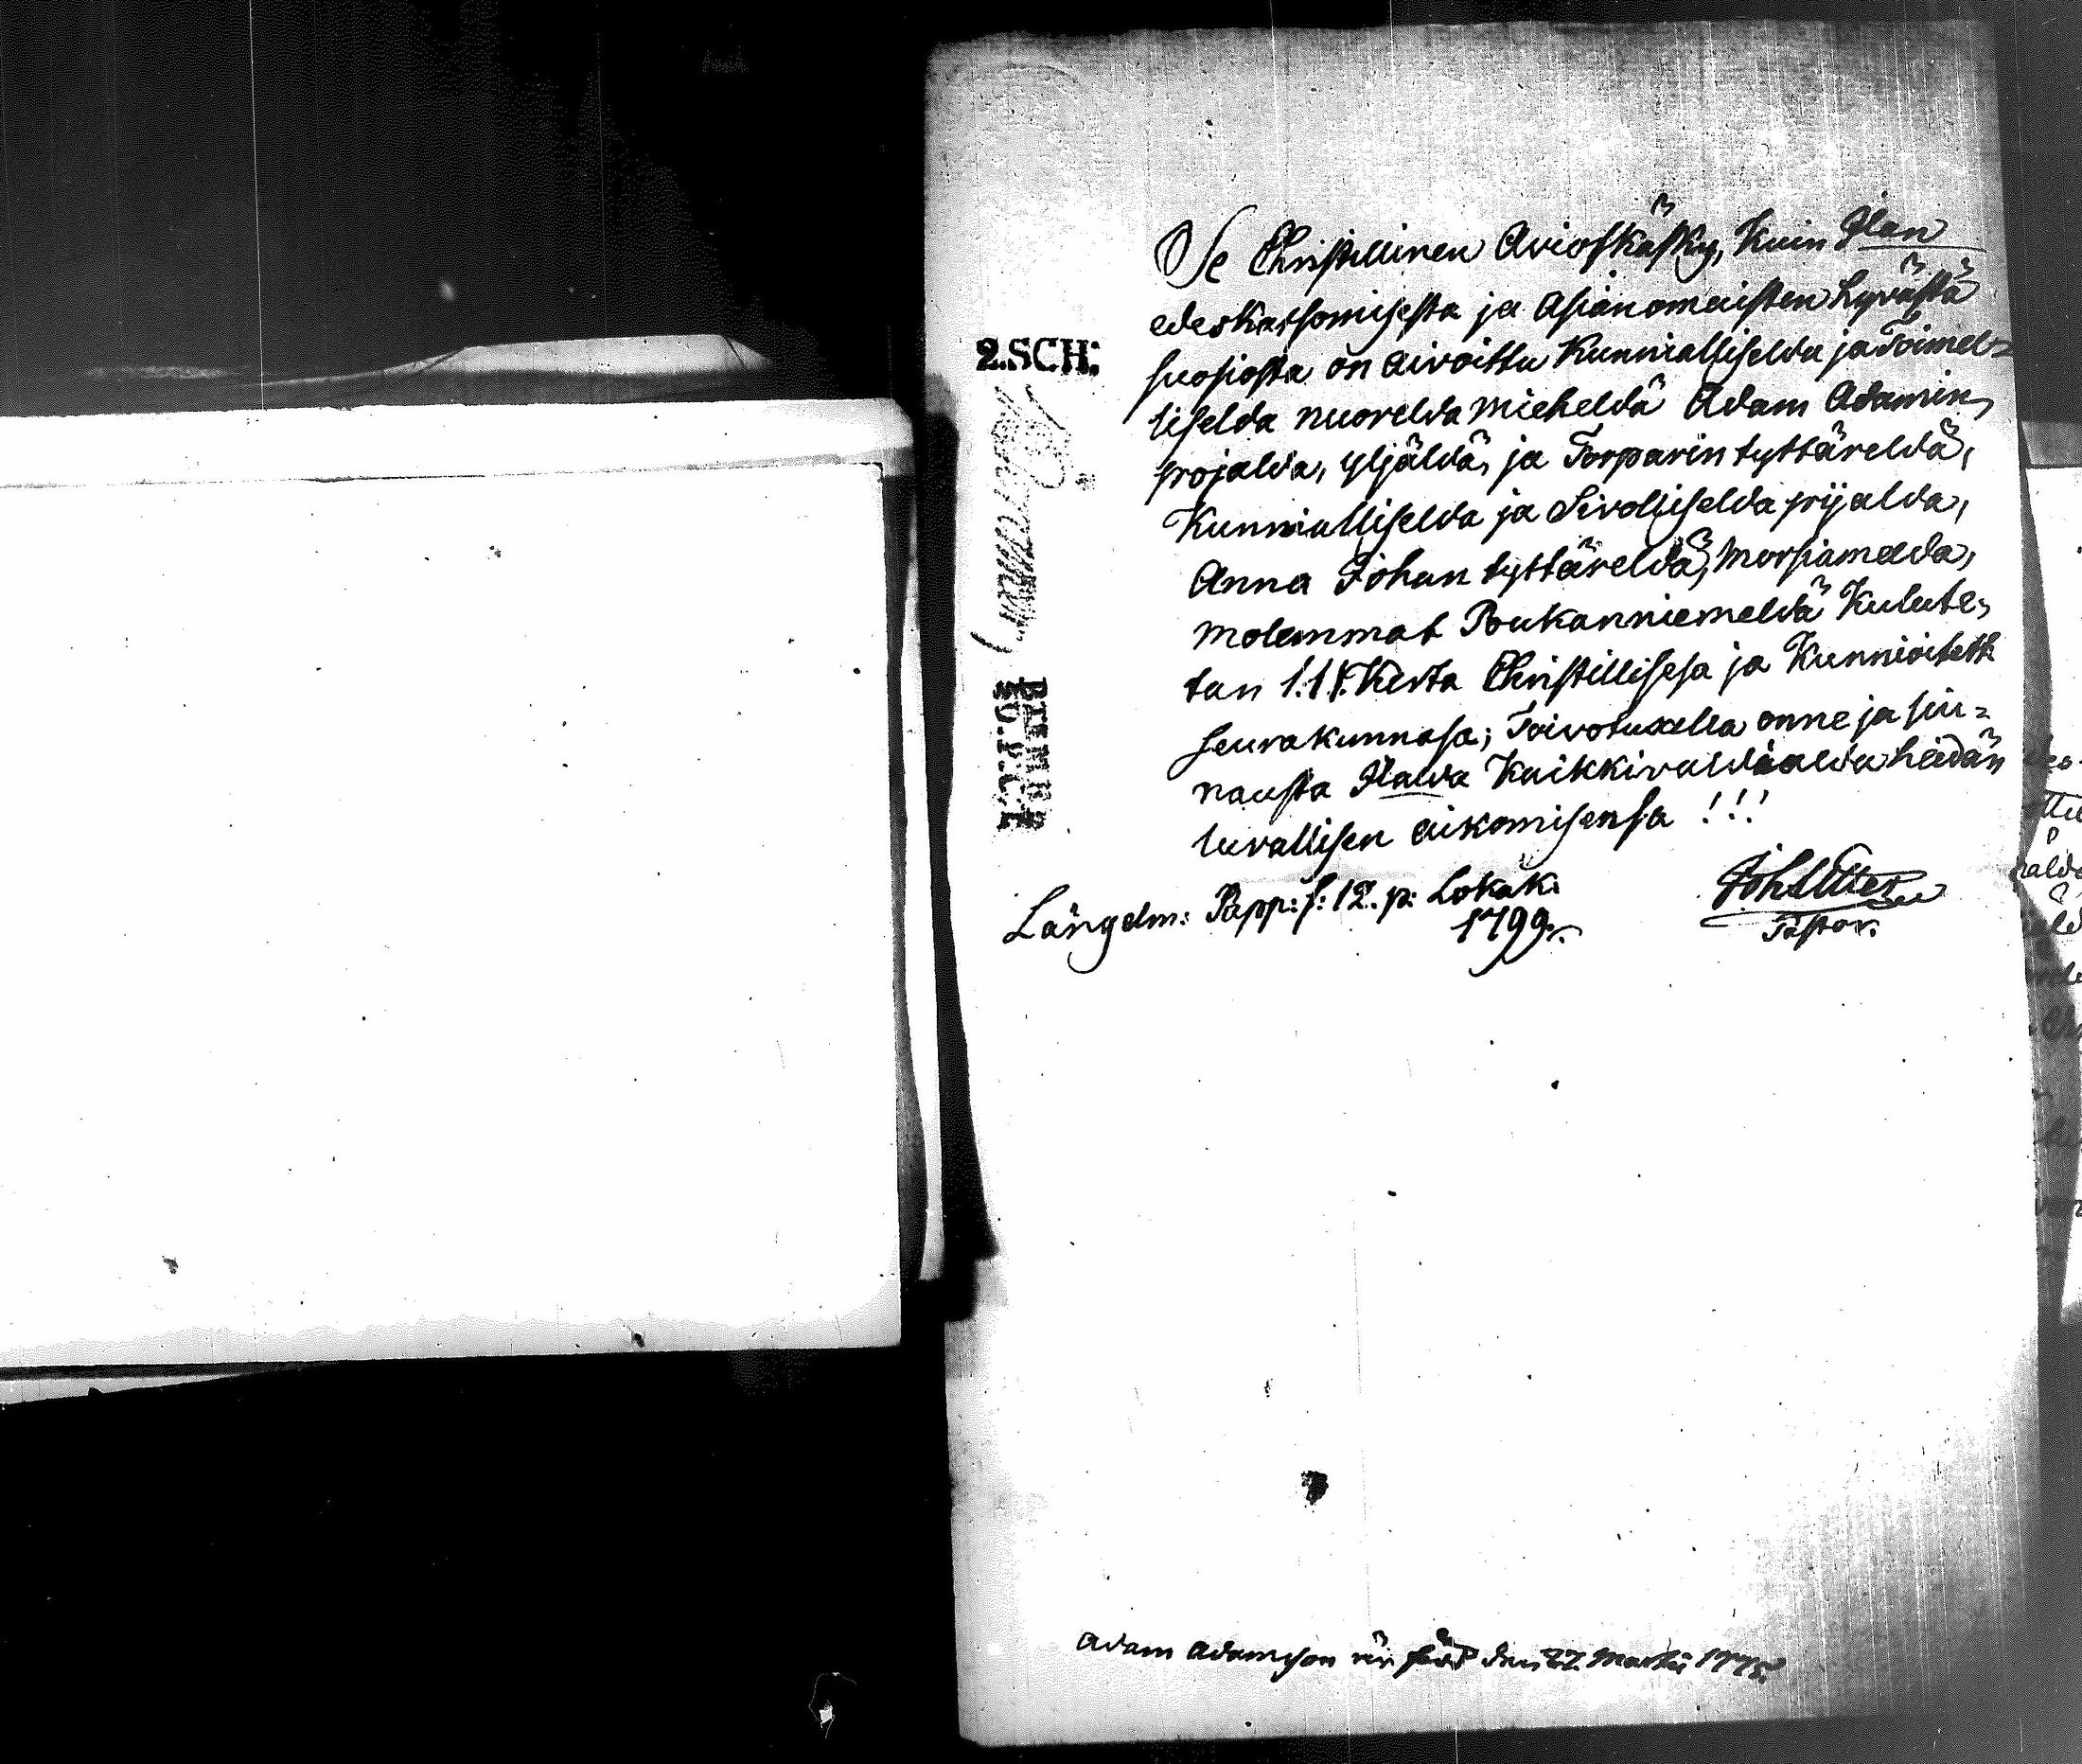 Se Christillinen Avioskäsky, Kuin Jlan
edeskatsomisesta ja Asianomaisten hyvästä
suosiosta on aivoittu Kunnialliselda ja Toimel=
liselda nuorelda mieheldä Adam Adamin
pojalda, yljäldä, ja Torparin tyttäreldä,
Kunnialliselda ja Sivolliselda pijalda,
Anna Johan tyttäreldä, morsiamelda,
molemmat Poukanniemeldä Kulute,
tan 1. Kerta Christillisesa ja Kunnioitett
seurakunnasa; Toivotuxella onne ja siu=
nausta Jlalda Kaikkivaldialda heidän
luvallisen aikomisensa !!!
Längelm: Papp: s: 12. p: Lokak:
1799.
Joh
Pastor.
2.SCH:
Adam Adamsson är född den 27. Martii 1775.